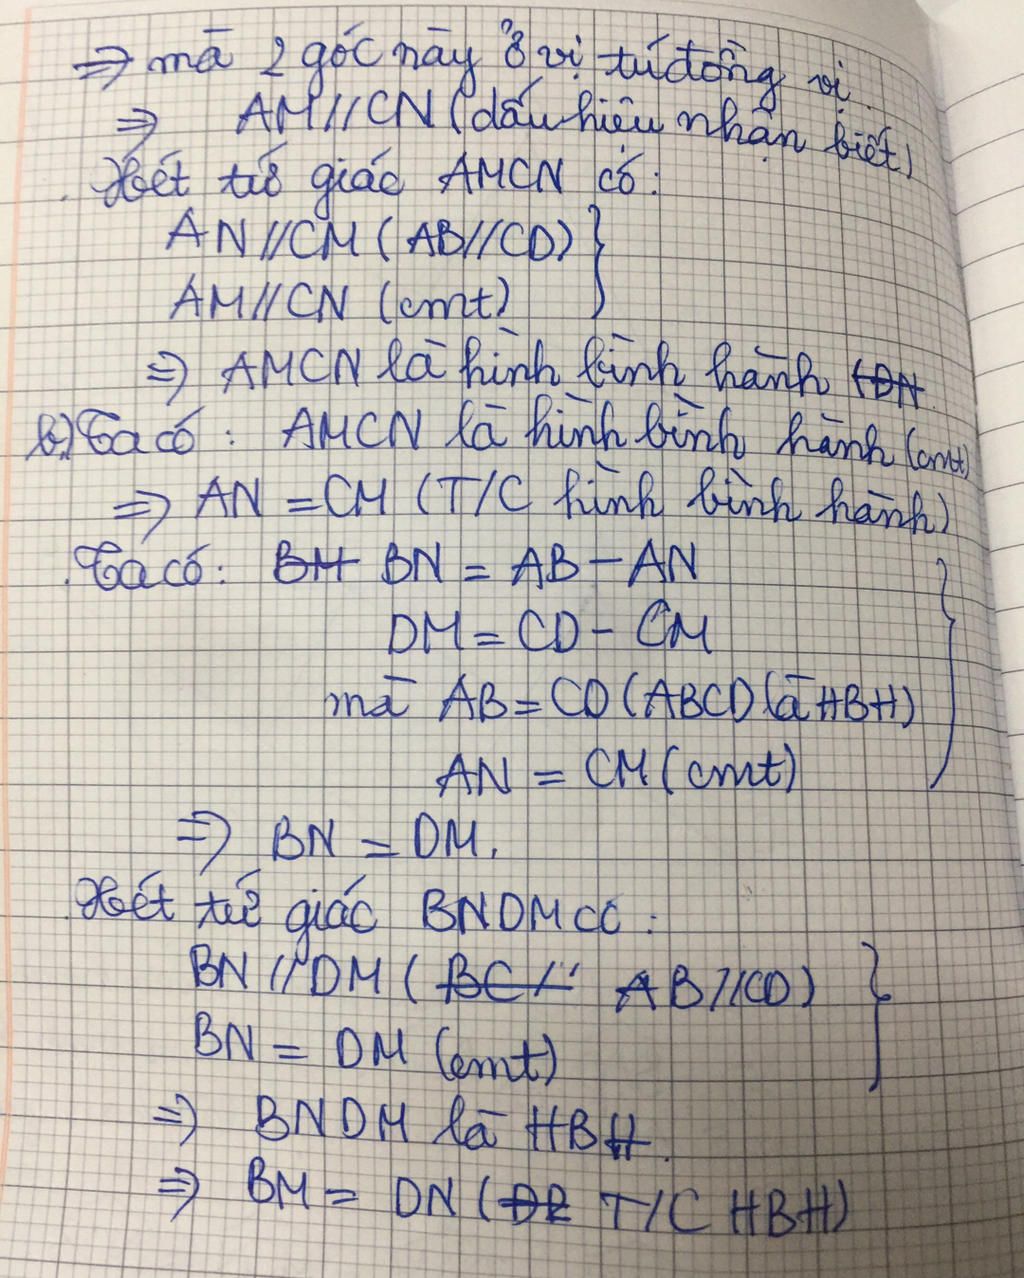 => mà 2 góc này ở vị trí đồng vị.
=> AM//CN (dấu hiệu nhận biết)
. Xét tứ giác AMCN có:
AN//CM (AB//CD)
AM//CN (cmt)
=> AMCN là hình bình hành (ĐN
b) Ta có: AMCN là hình bình hành (cmt)
=> AN = CM (T/C hình bình hành)
. Ta có: BM BN = AB - AN
DM = CD - CM
mà AB = CD (ABCD là HBH)
AN = CM (cmt)
=> BN = DM.
. Xét tứ giác BNDM có:
BN//DM (BC // AB//CD)
BN = DM (cmt)
=> BNDM là HBH.
=> BM = DN (T/C HBH)